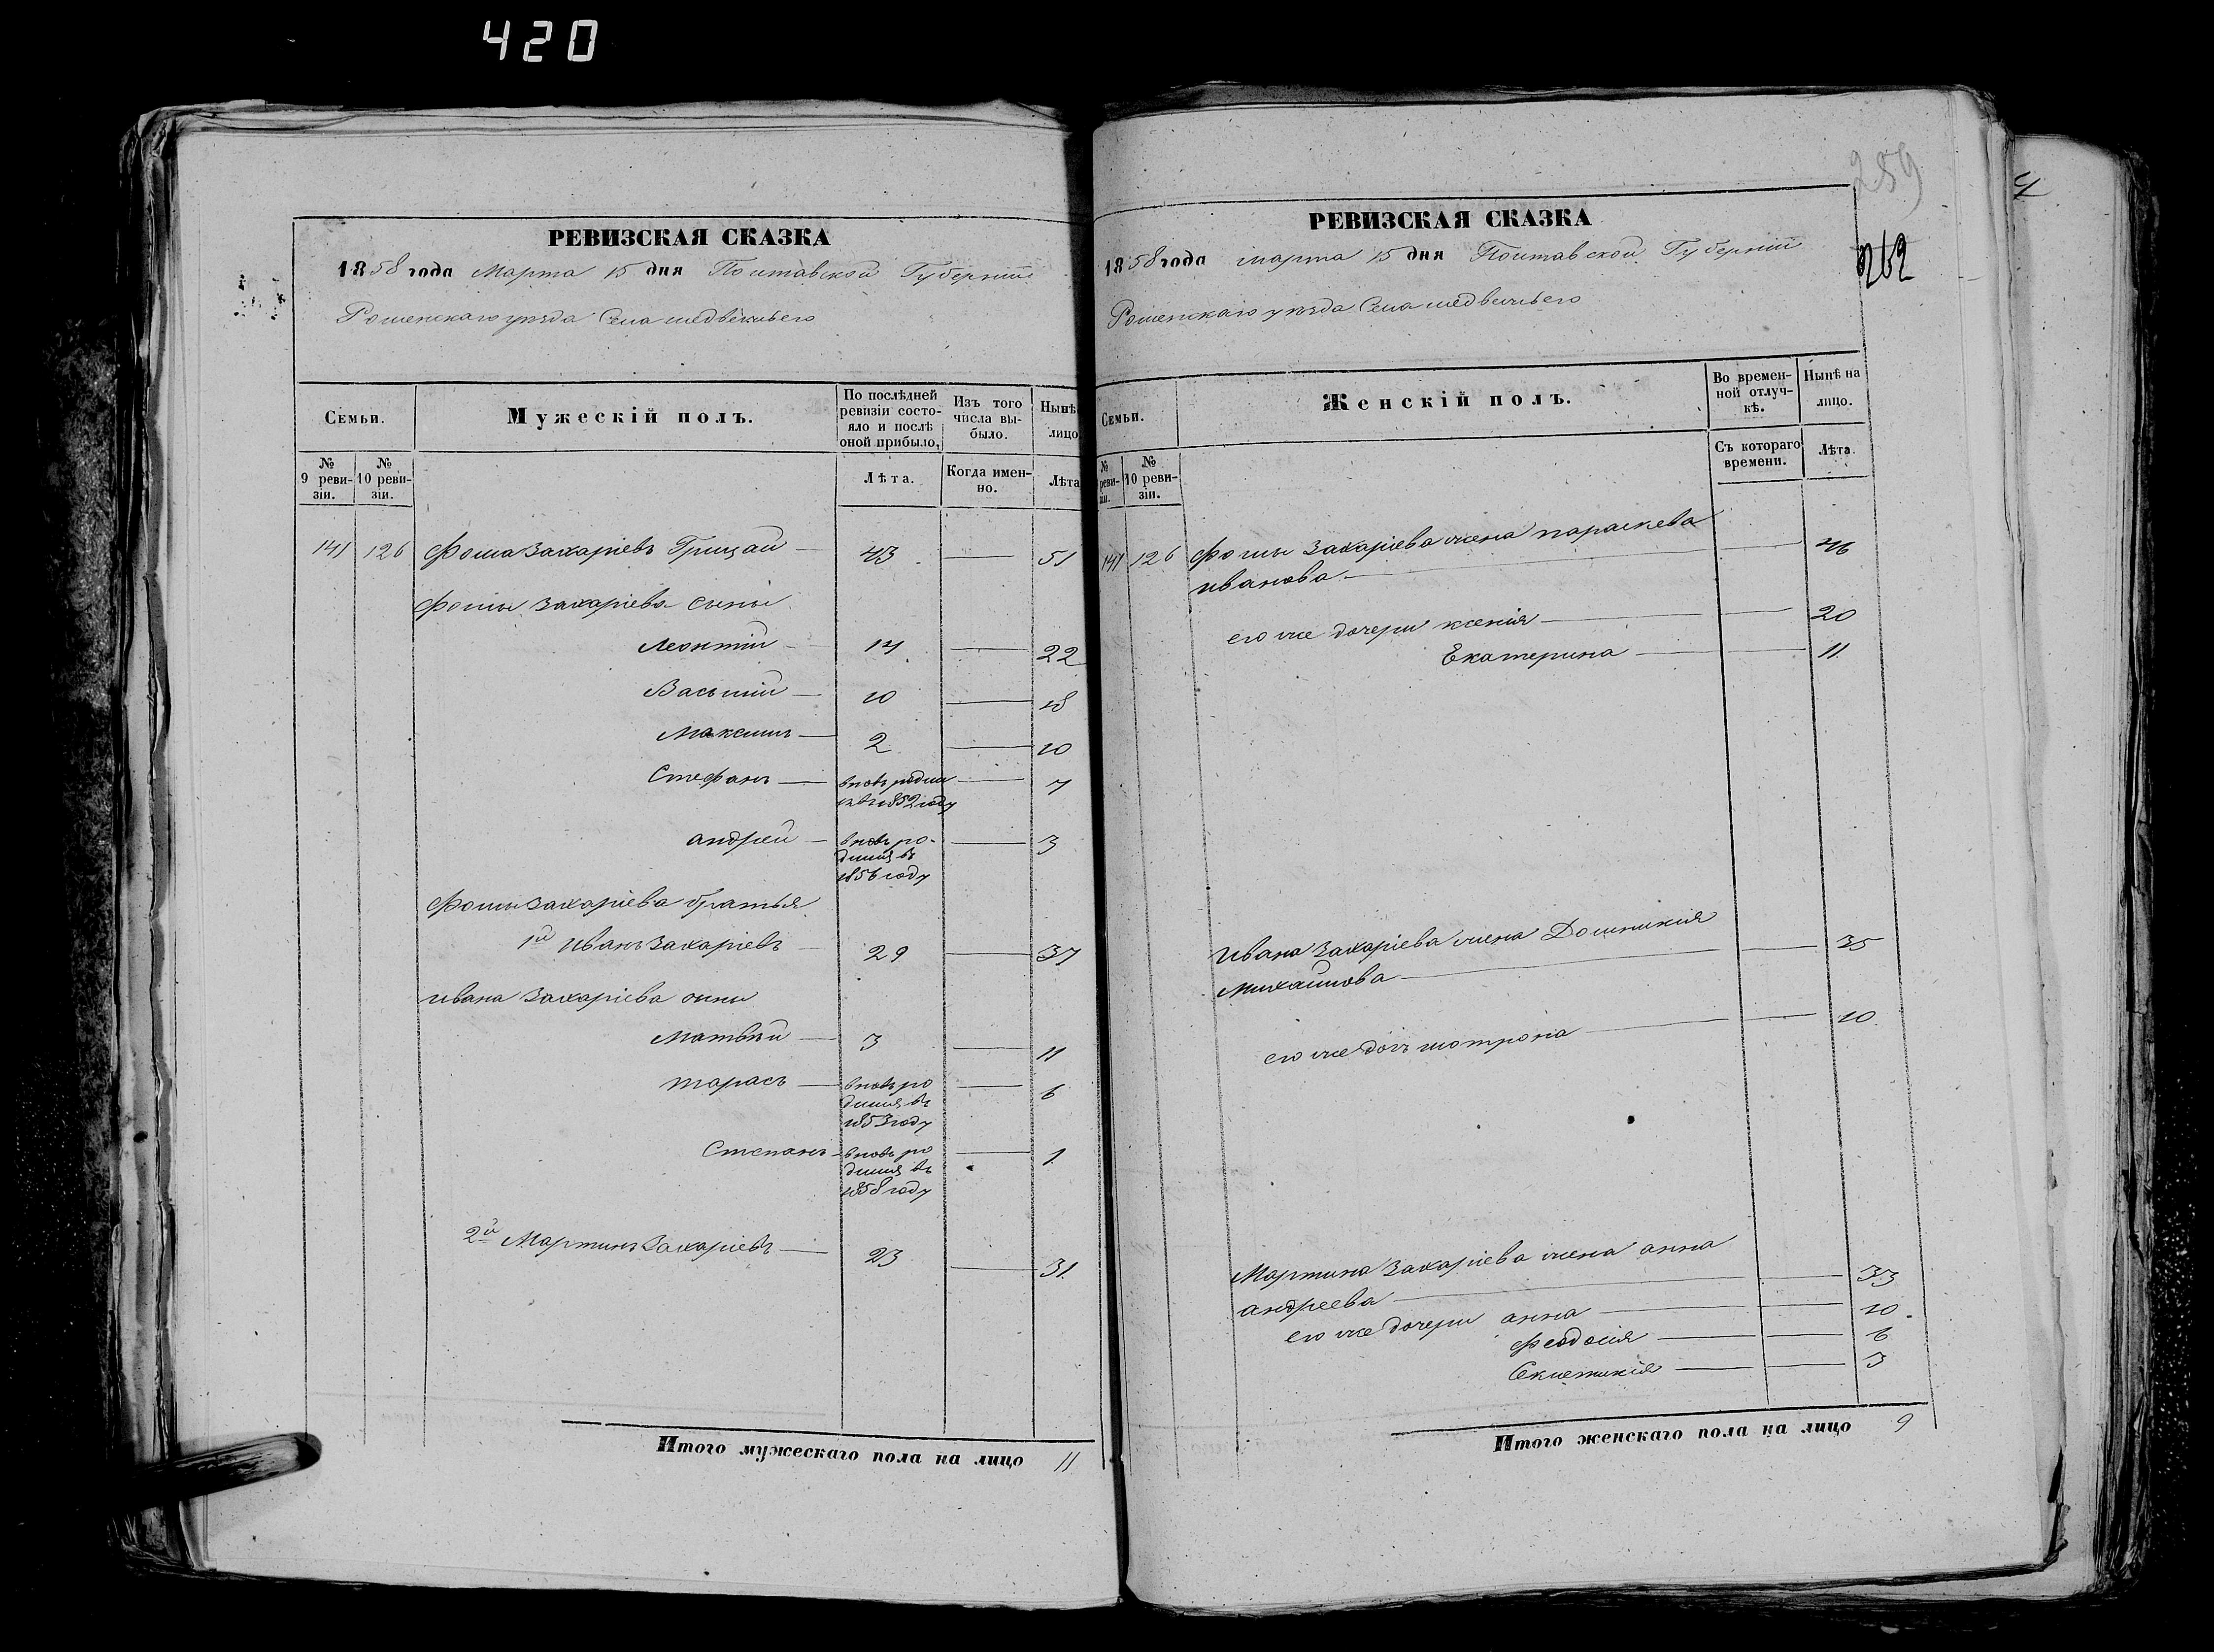 420
РЕВИЗСКАЯ СКАЗКА
1858 года Марта 15 дня Полтавской Губерніи
Роменскаго уѣзда Села медвежьего
Семьи.
Мужескій полъ.
По послѣдней ревизіи состояло и послѣ оной прибыло,
Изъ того числа выбыло.
Нынѣ лицо
№ 9 ревизіи.
№ 10 ревизіи.
Лѣта.
Когда именно.
Лѣта
141 126 Фома Захаріевъ Грицай 43 51
Фомы Захаріева сыны
Леонтій 14 22
Василій 10 18
Максимъ 2 10
Стефанъ вновь родил
ся въ 1852 году 7
андрей вновь ро-
дился въ
1856 году 3
Фомы Захаріева братья
1й Иванъ Захаріевъ 29 37
Ивана Захаріева сыны
Матвѣй 3 11
тарасъ вновь ро
дился въ
1853 году 6
Степанъ вновь ро
дился въ
1858 году 1
2й Мартинъ Захаріевъ 23 31
Итого мужескаго пола на лицо 11
259
262
РЕВИЗСКАЯ СКАЗКА
1858 года марта 15 дня Полтавской Губерніи
Роменскаго уѣзда Села медвежьего
Семьи.
Женскій полъ.
Во временной отлучкѣ.
Нынѣ на лицо.
№ реви- зіи.
№ 10 ревизіи.
Съ котораго времени.
Лѣта.
141 126 Фомы Захаріева жена параскева
иванова 46
его же дочери ксенія 20
Екатерина 11
Ивана Захаріева жена Домникія
михайлова 35
его же дочь мотрона 10
Мартина Захаріева жена анна
андреева 33
его же дочери анна 10
Феодосія 6
3
Итого женскаго пола на лицо 9